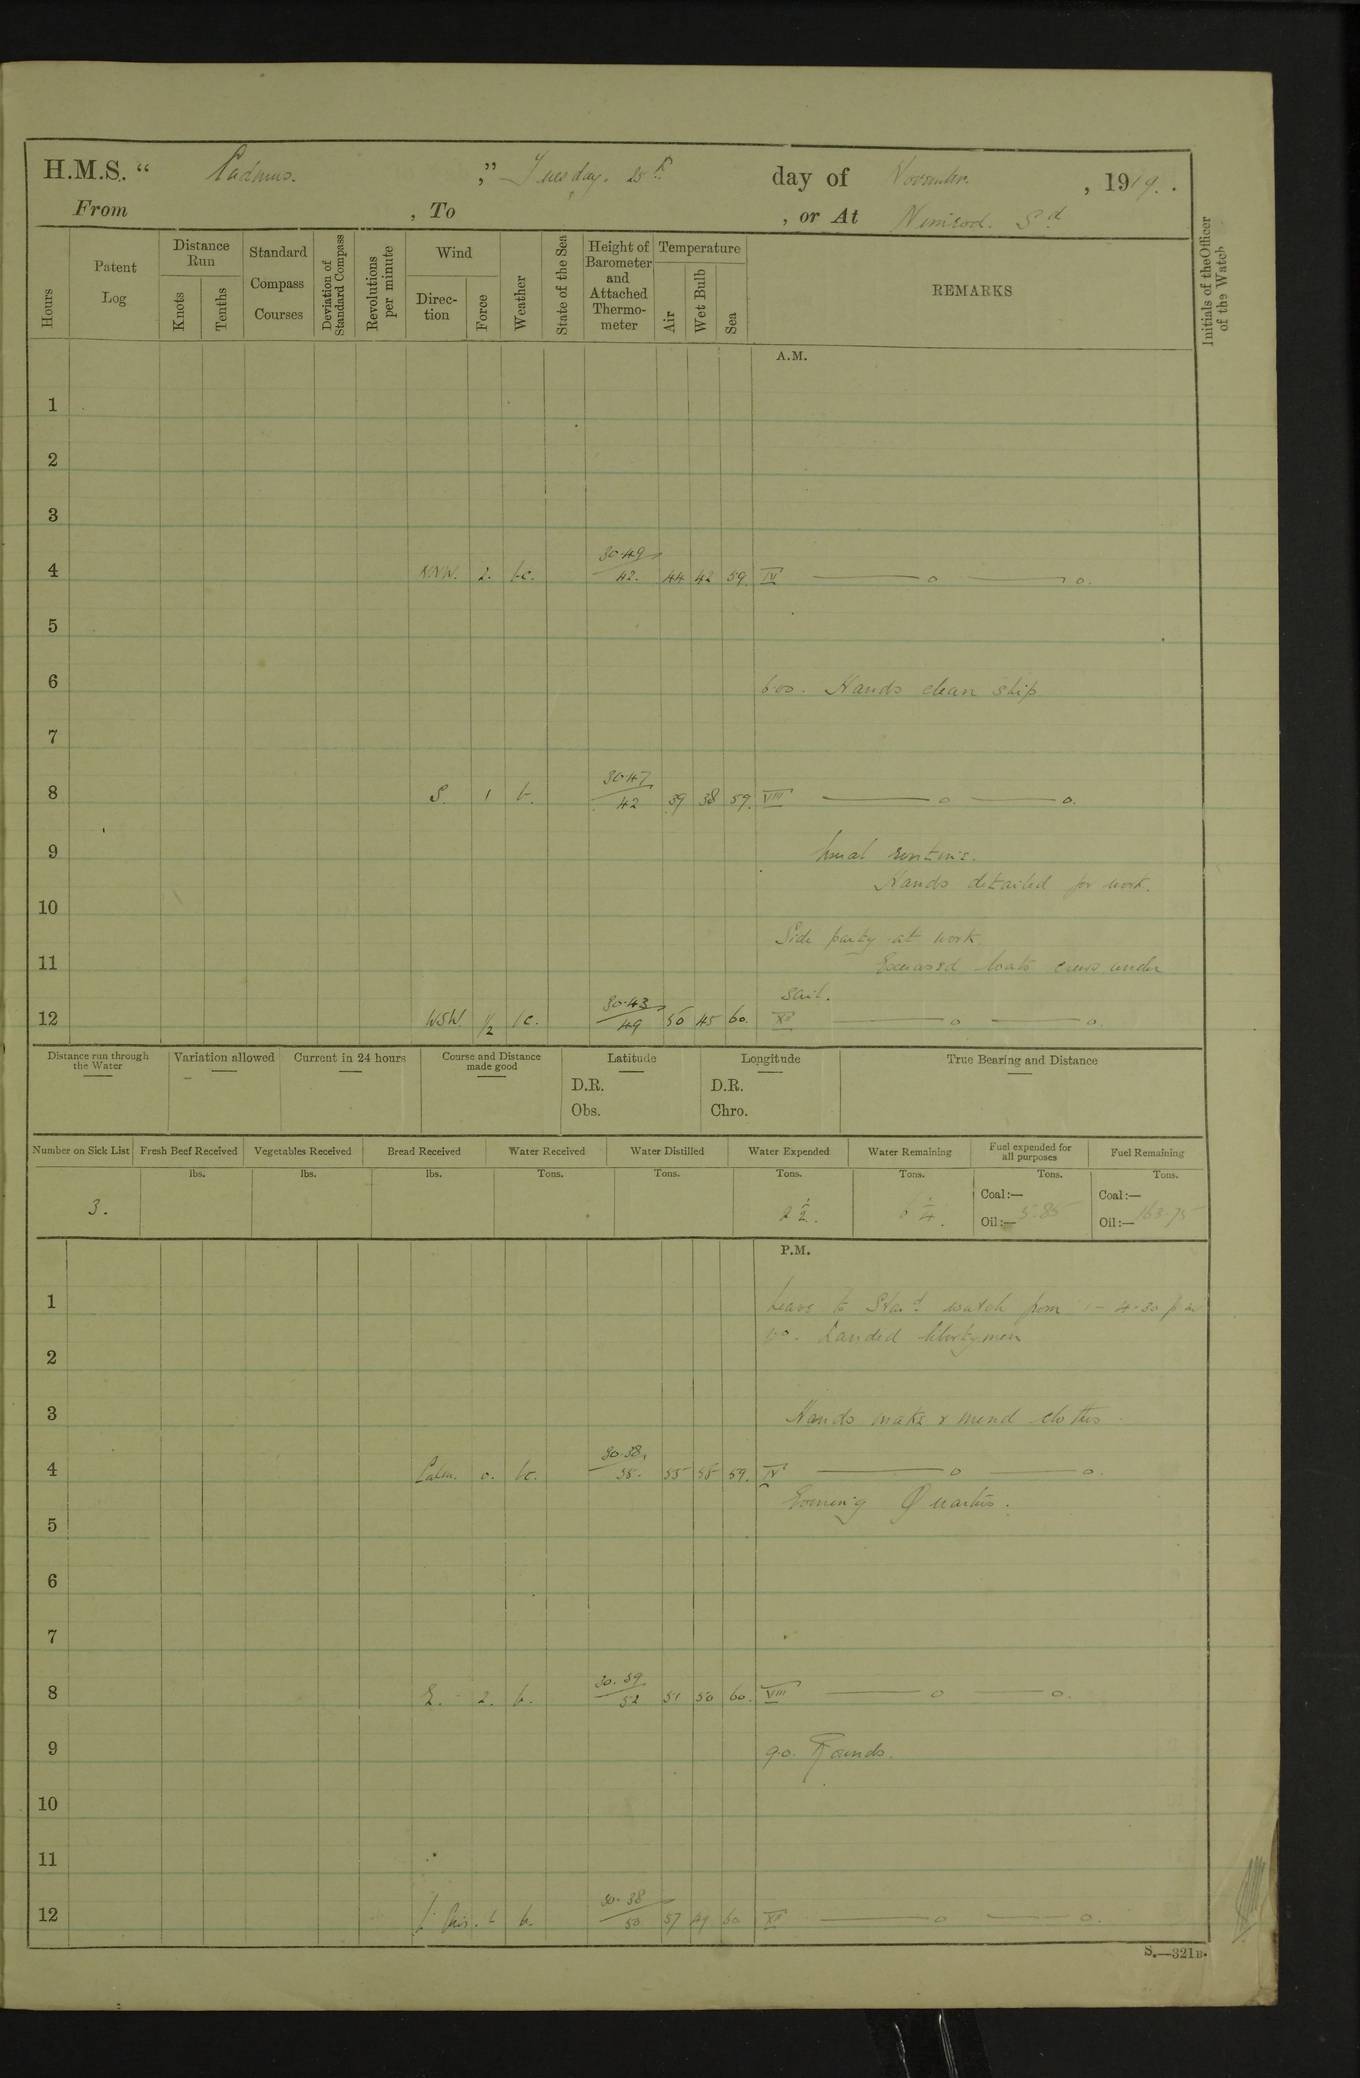 H.M.S. “ Cadmus. ,” Tuesday. 25th day of November. , 1919.
From , To , or At Nimrod. Sd
Hours
Patent Log
Distance Run
Knots
Tenths
Standard Compass Courses
Deviation of Standard Compass
Revolutions per minute
Wind
Direction
Force
Weather
State of the Sea
Height of Barometer and Attached Thermometer
Temperature
Air
Wet Bulb
Sea
REMARKS
Initials of the Officer of the Watch
A.M.
1
2
3
4 NNW. 2. bc. 30.49 / 42. 44 42 59. IV —— o —— o.
5
6 6.00. Hands clean ship
7
8 S. 1 b. 30.47 / 42 39 38 59. VIII —— o —— o.
9 Usual routine.
Hands detailed for work.
10
Side party at work
11 Exercised boats crews under
sail.
12 WSW. 1/2 bc. 30.43 / 49 50 45 60. XII —— o —— o.
Distance run through the Water
Variation allowed
Current in 24 hours
Course and Distance made good
Latitude
D.R.
Obs.
Longitude
D.R.
Chro.
True Bearing and Distance
Number on Sick List Fresh Beef Received Vegetables Received Bread Received Water Received Water Distilled Water Expended Water Remaining Fuel expended for all purposes Fuel Remaining
lbs. lbs. lbs. Tons. Tons. Tons. Tons. Tons. Tons.
3. 2 1/2. 6 1/4. Coal:— Oil:— 5.85 Coal:— Oil:— 163.75
P.M.
1 Leave to Stard. watch from 1 - 4.30 p m
Landed libertymen
2
3 Hands make & mend clothes
4 Calm. 0. bc. 30.38. / 55. 55 58 59. IV —— o —— o.
Evening Quarters.
5
6
7
8 E. 2. b. 30.39 / 52 51 50 60. VIII —— o —— o.
9 9.0. Rounds.
10
11
12 b. 30.38 / 50 49 60 XII —— o —— o.
S.—321B.